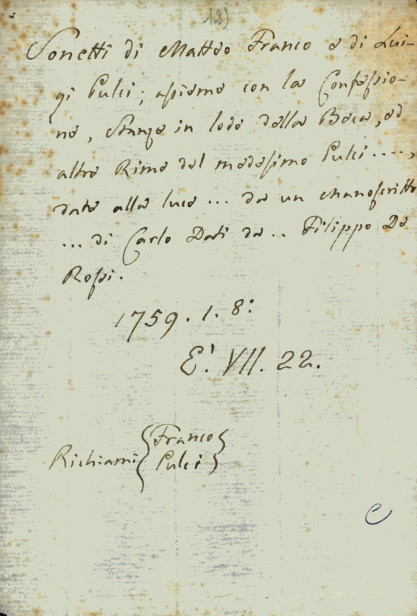 12)
Sonetti di Matteo Franco e di Lui-
gi Pulci; assieme con la Confessio-
ne, Stanze in lode della Beca, ed
altre Rime del medesimo Pulci ....,
date alla luce ... da un manoscritto
... di Carlo Dati da .. Filippo De
Rossi.
1759. 1. 8:
E' VII. 22.
Richiami { Franco }
{ Pulci }
C